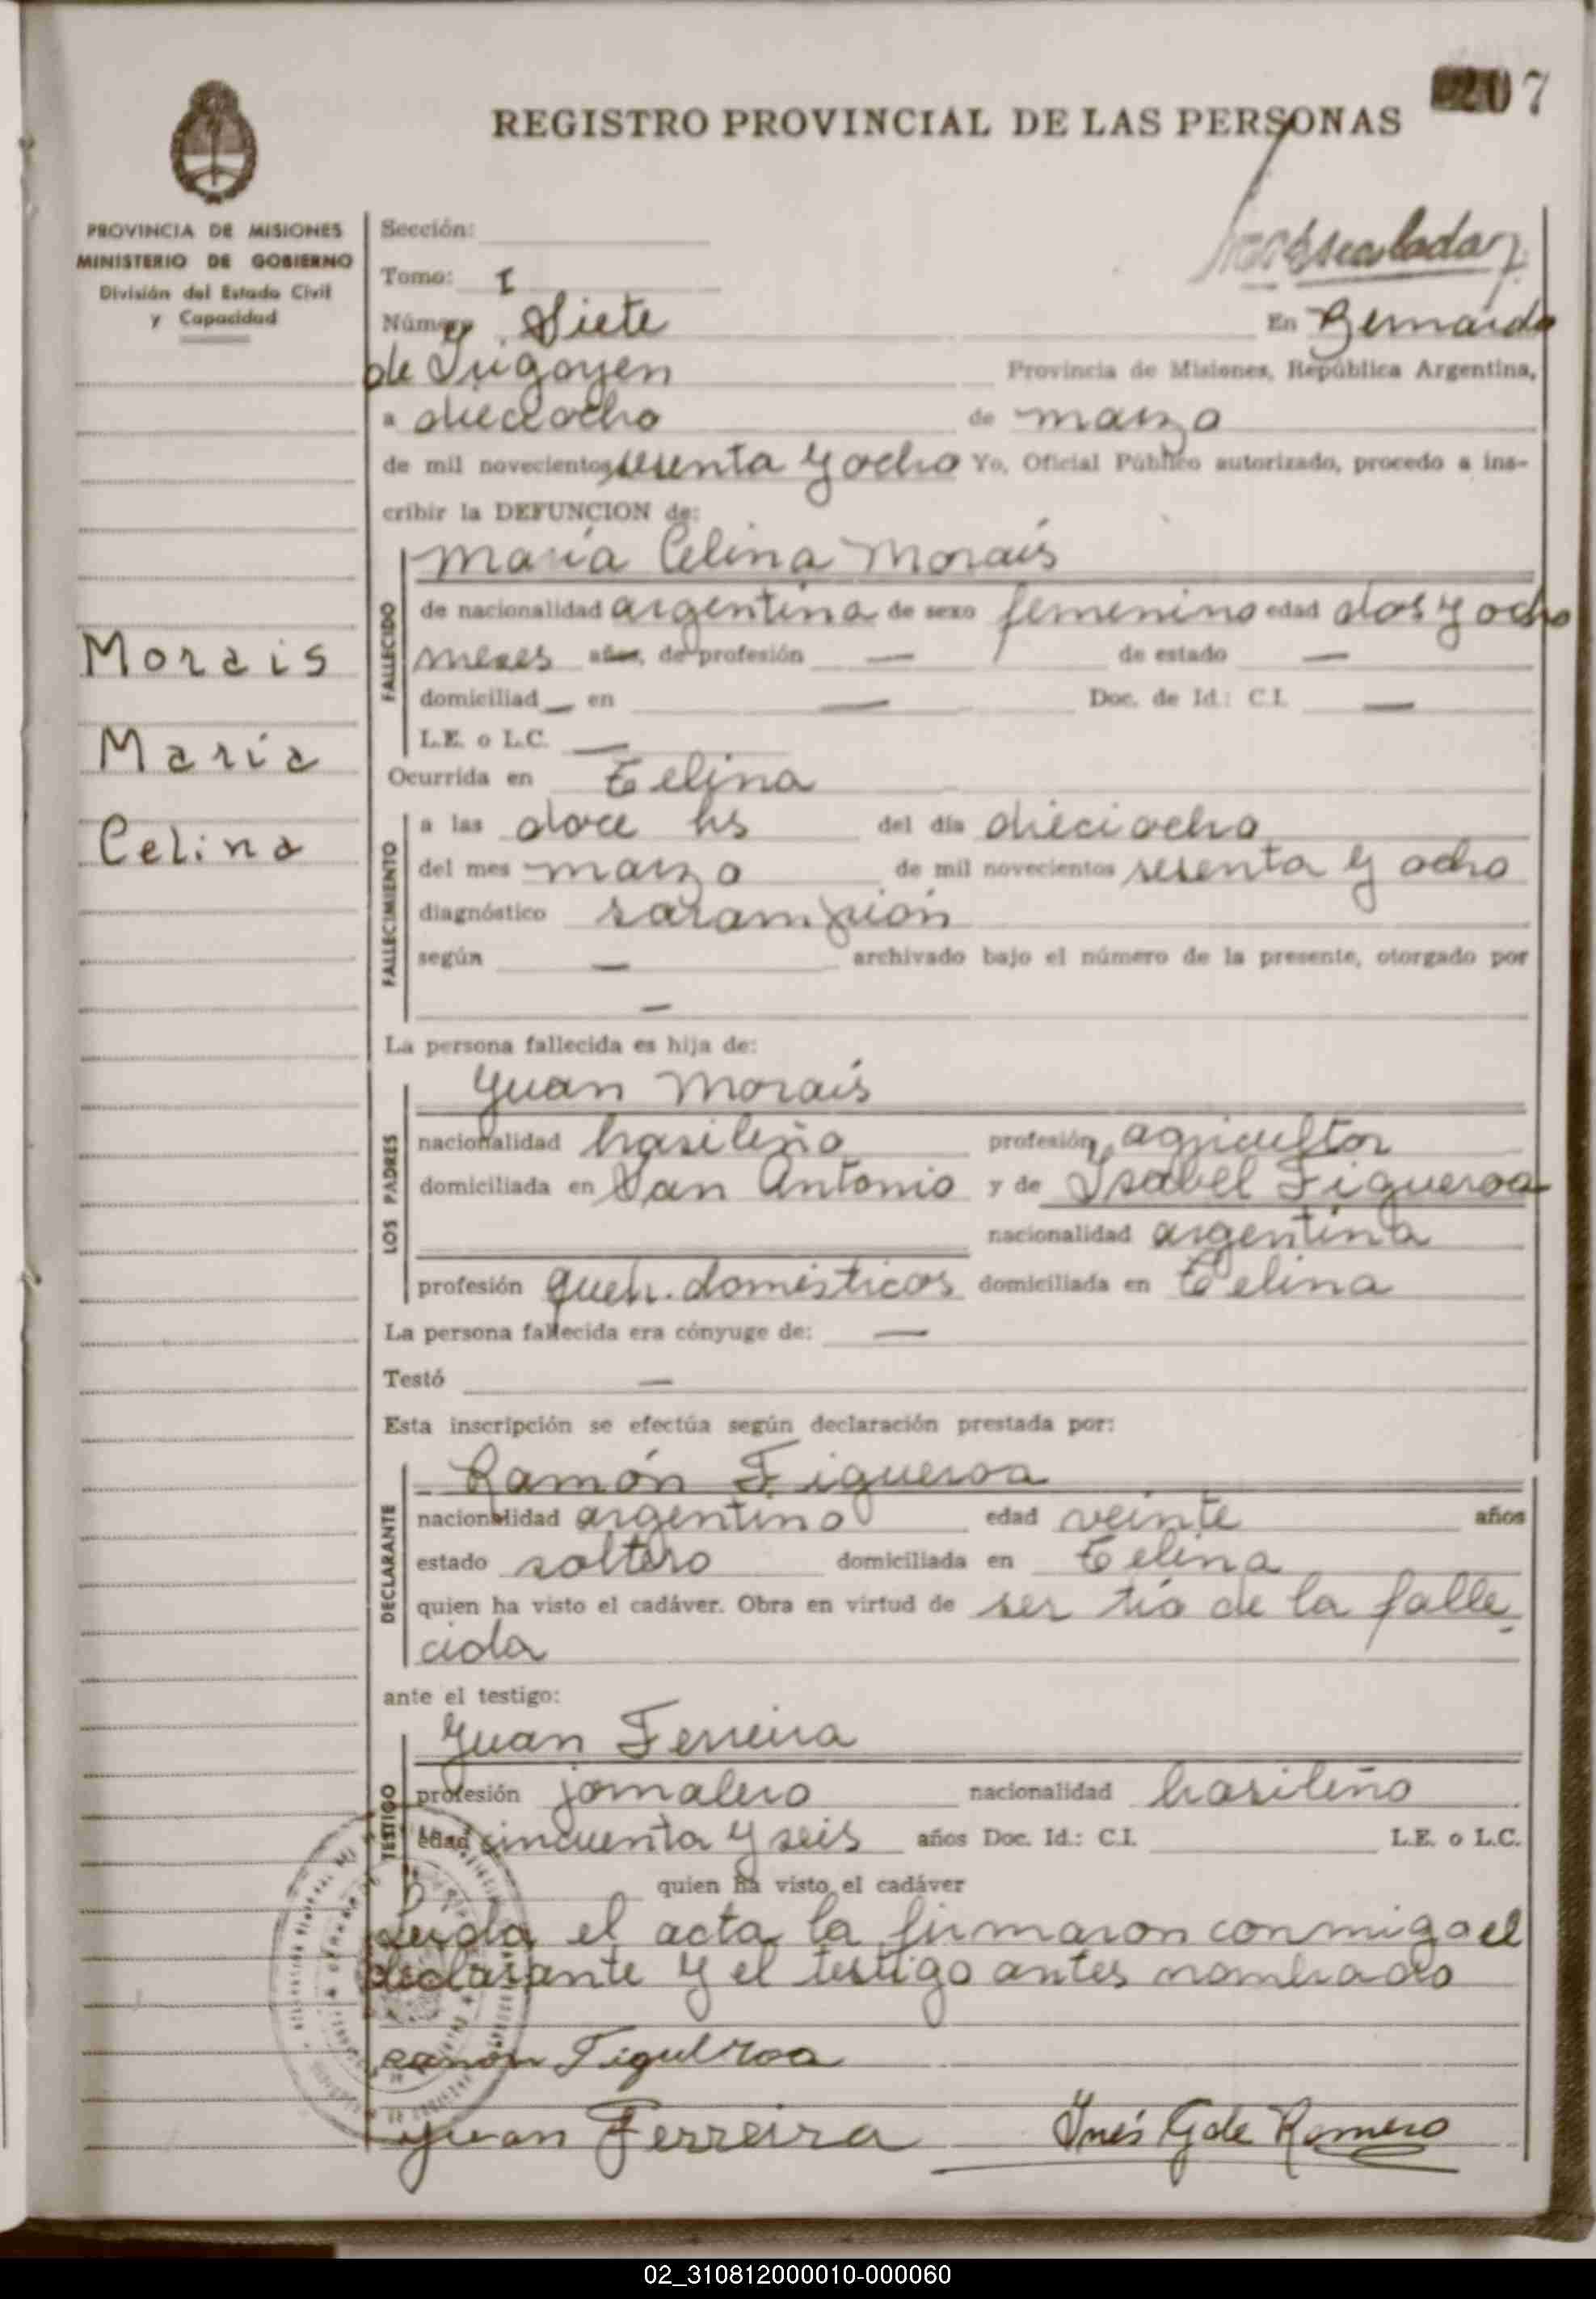 207
REGISTRO PROVINCIAL DE LAS PERSONAS
PROVINCIA DE MISIONES
MINISTERIO DE GOBIERNO
División del Estado Civil
y Capacidad
Morais
María
Celina
Sección:
Tomo: I
Número Siete En Bernardo
de Irigoyen Provincia de Misiones, República Argentina,
a dieciocho de marzo
de mil novecientos sesenta y ocho Yo, Oficial Público autorizado, procedo a ins-
cribir la DEFUNCION de:
FALLECIDO
María Celina Morais
de nacionalidad argentina de sexo femenino edad dos y ocho
meses años, de profesión — de estado —
domiciliad — en — Doc. de Id.: C.I. —
L.E. o L.C. —
Ocurrida en Celina
FALLECIMIENTO
a las doce hs del día dieciocho
del mes marzo de mil novecientos sesenta y ocho
diagnóstico sarampión
según — archivado bajo el número de la presente, otorgado por
—
La persona fallecida es hija de:
LOS PADRES
Juan Morais
nacionalidad brasileño profesión agricultor
domiciliada en San Antonio y de Isabel Figueroa
nacionalidad argentina
profesión queh. domésticos domiciliada en Celina
La persona fallecida era cónyuge de: —
Testó —
Esta inscripción se efectúa según declaración prestada por:
DECLARANTE
Ramón Figueroa
nacionalidad argentino edad veinte años
estado soltero domiciliada en Celina
quien ha visto el cadáver. Obra en virtud de ser tío de la falle
cida
ante el testigo:
TESTIGO
Juan Ferreira
profesión jornalero nacionalidad brasileño
edad cincuenta y seis años Doc. Id.: C.I. L.E. o L.C.
quien ha visto el cadáver
Leída el acta la firmaron conmigo el
declarante y el testigo antes nombrado
Ramón Figueroa
Juan Ferreira Inés G de Romero
02_310812000010-000060